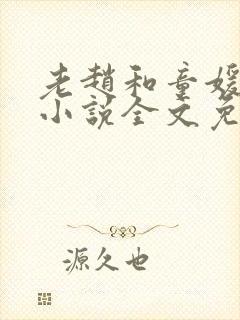 老赵和童媛
小说全文免
源久也